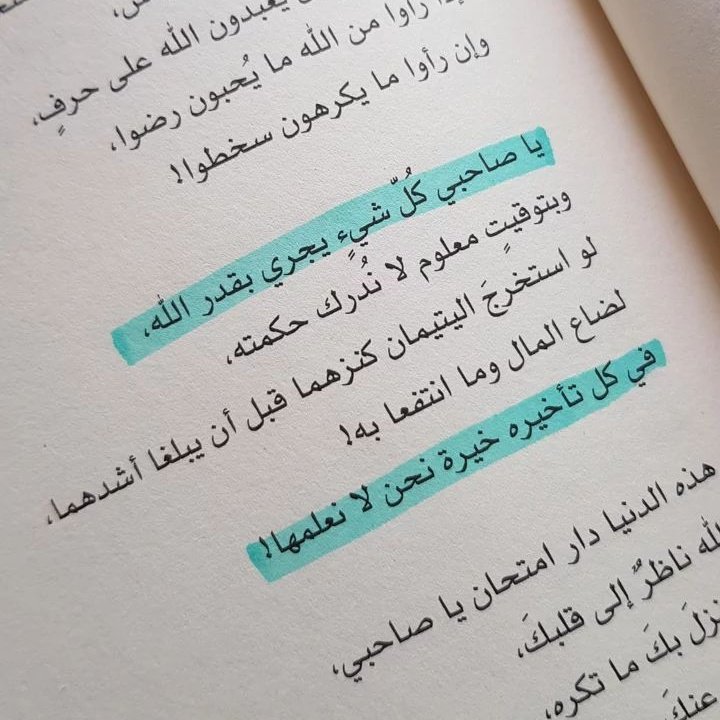 يعبدون الله على حرفٍ،
رأوا من الله ما يُحبون رضوا،
وإن رأوا ما يكرهون سخطوا!
يا صاحبي كُلّ شيءٍ يجري بقدر الله،
وبتوقيتٍ معلوم لا نُدرك حكمته،
لو استخرجَ اليتيمان كنزهما قبل أن يبلغا أشدهما،
لضاع المال وما انتفعا به!
في كل تأخيره خيرة نحن لا نعلمها!
هذه الدنيا دار امتحان يا صاحبي،
ناظرٌ إلى قلبكَ،
بكَ ما تكره،
عنكَ